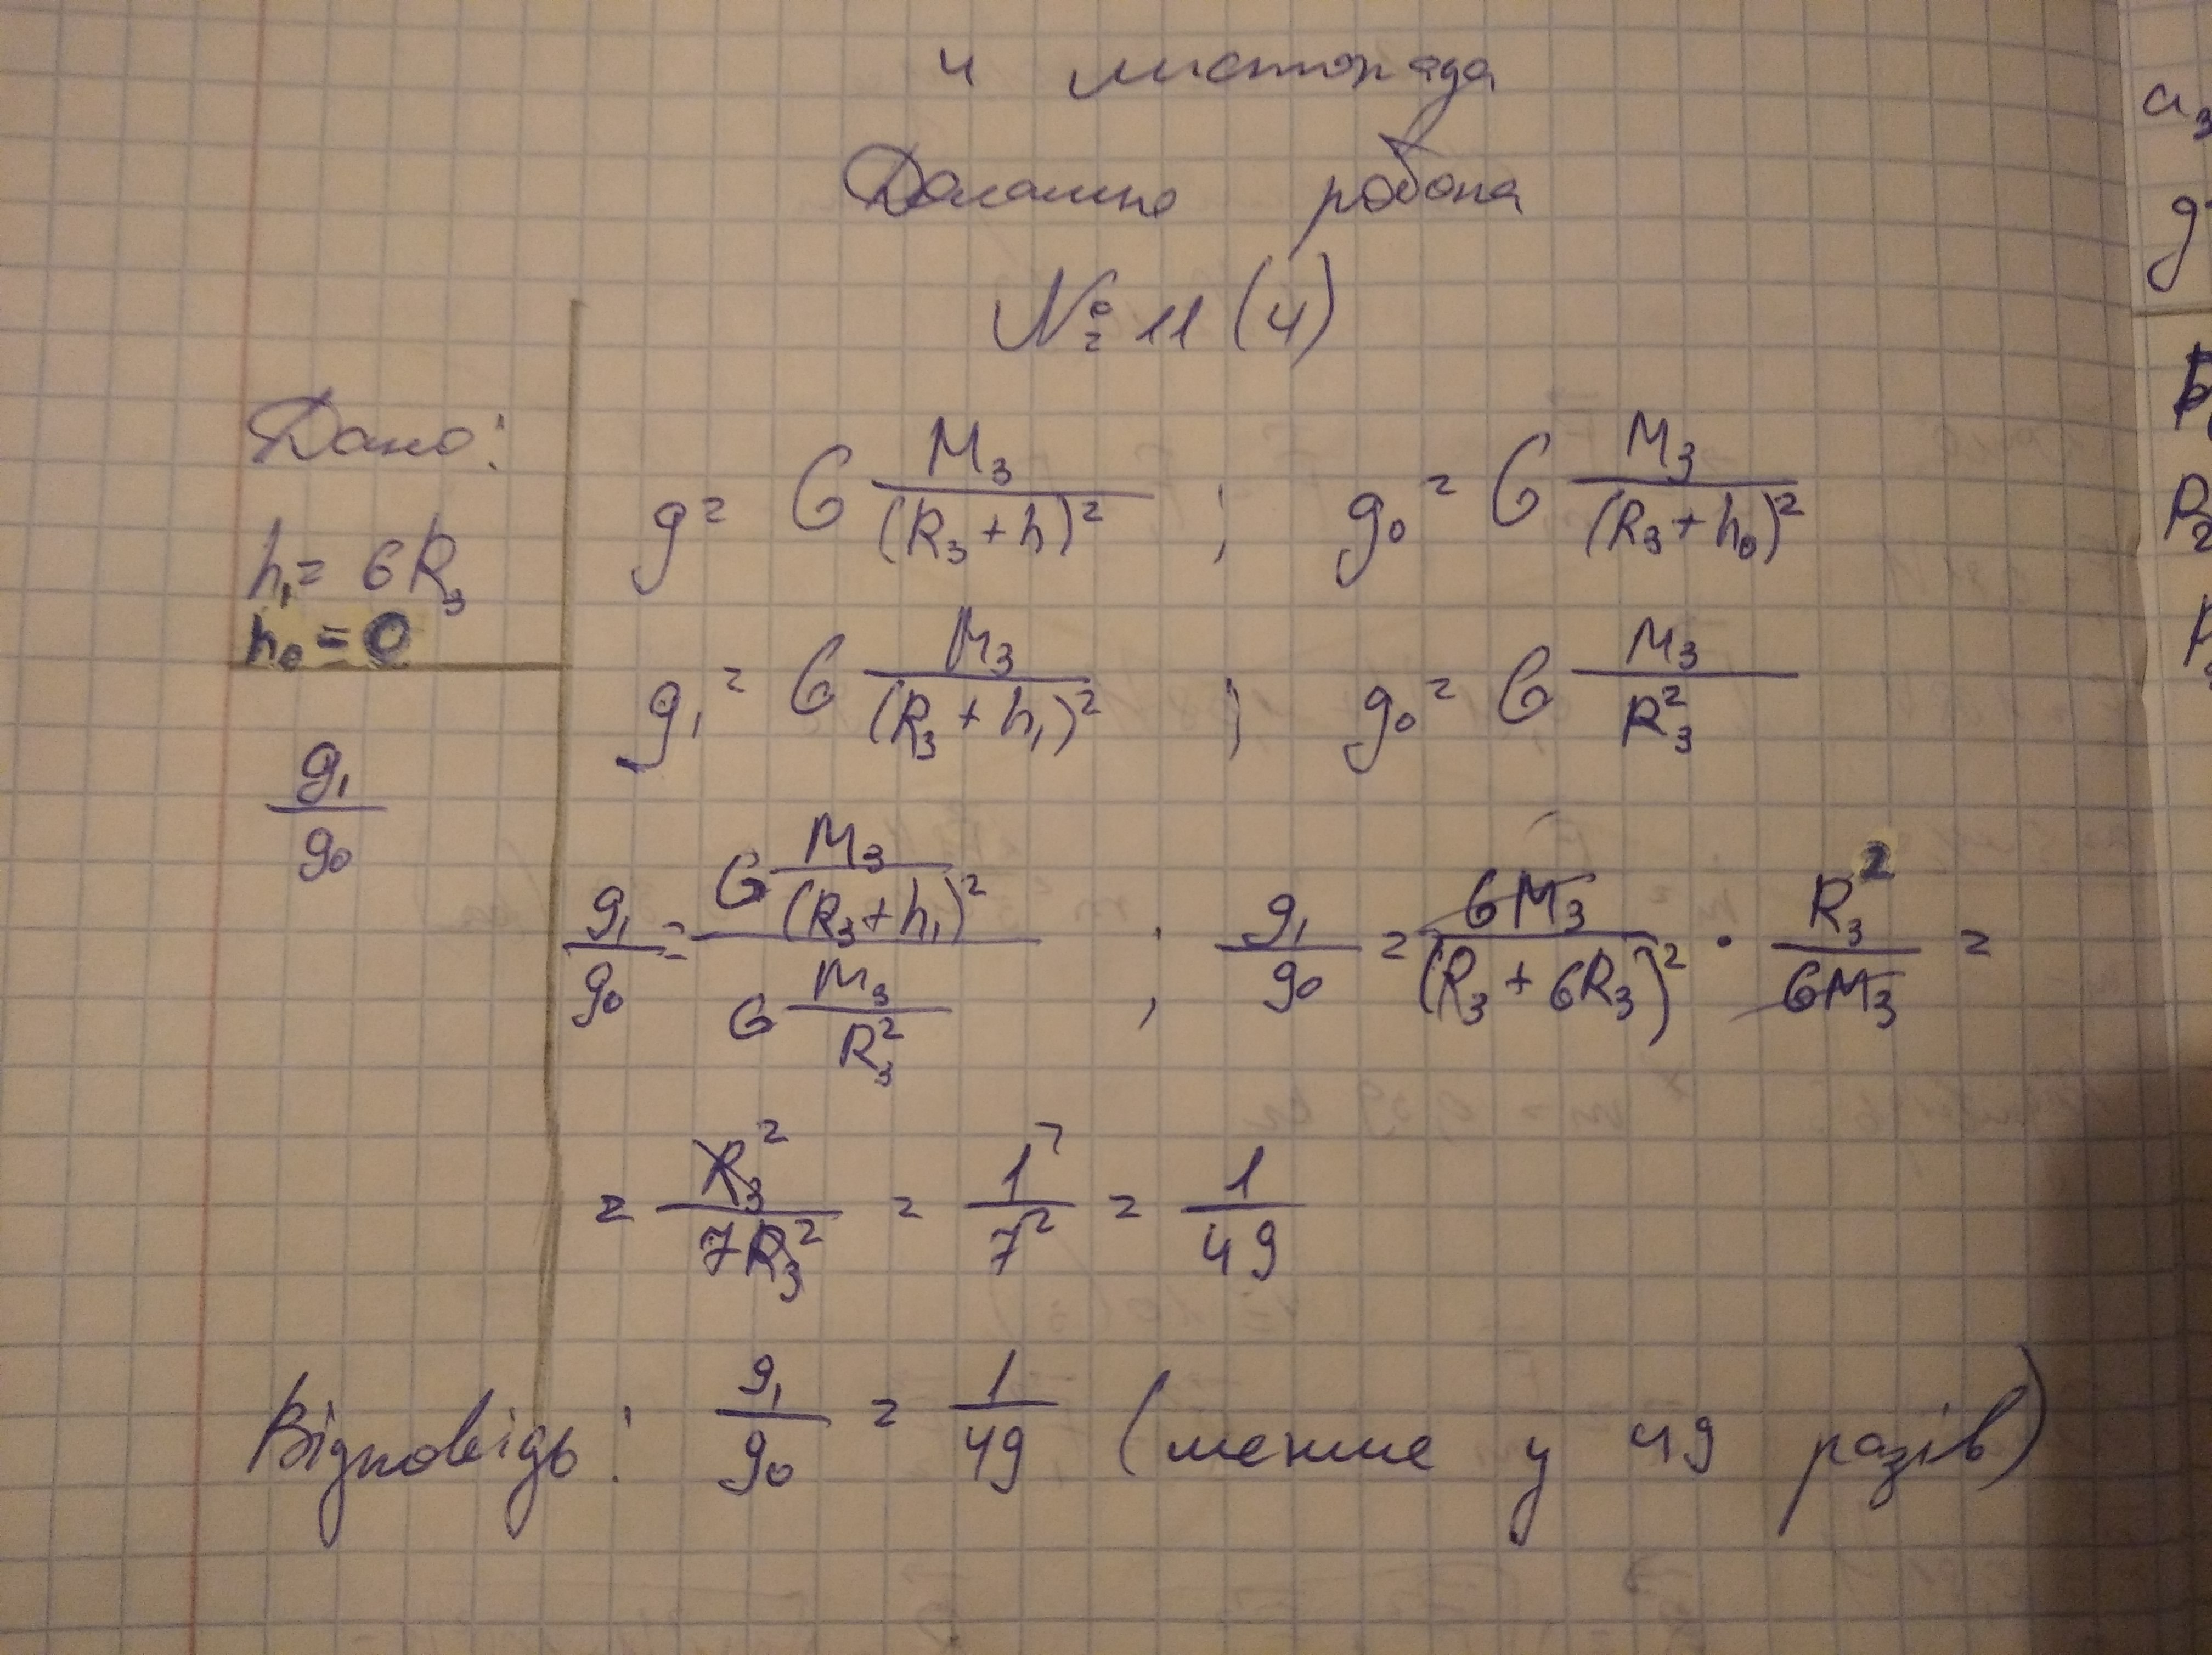 4 листопада
Домашня робота
№ 11 (4)
Дано:
h₁ = 6R₃
h₀ = 0
g₁/g₀
g = G M₃/(R₃ + h)² ; g₀ = G M₃/(R₃ + h₀)²
g₁ = G M₃/(R₃ + h₁)² ; g₀ = G M₃/R₃²
g₁/g₀ = (G M₃/(R₃ + h₁)²)/(G M₃/R₃²) ; g₁/g₀ = GM₃/(R₃ + 6R₃)² · R₃²/GM₃ =
= R₃²/7R₃² = 1/7² = 1/49
Відповідь: g₁/g₀ = 1/49 (менше у 49 разів)
a₃
g
P₂